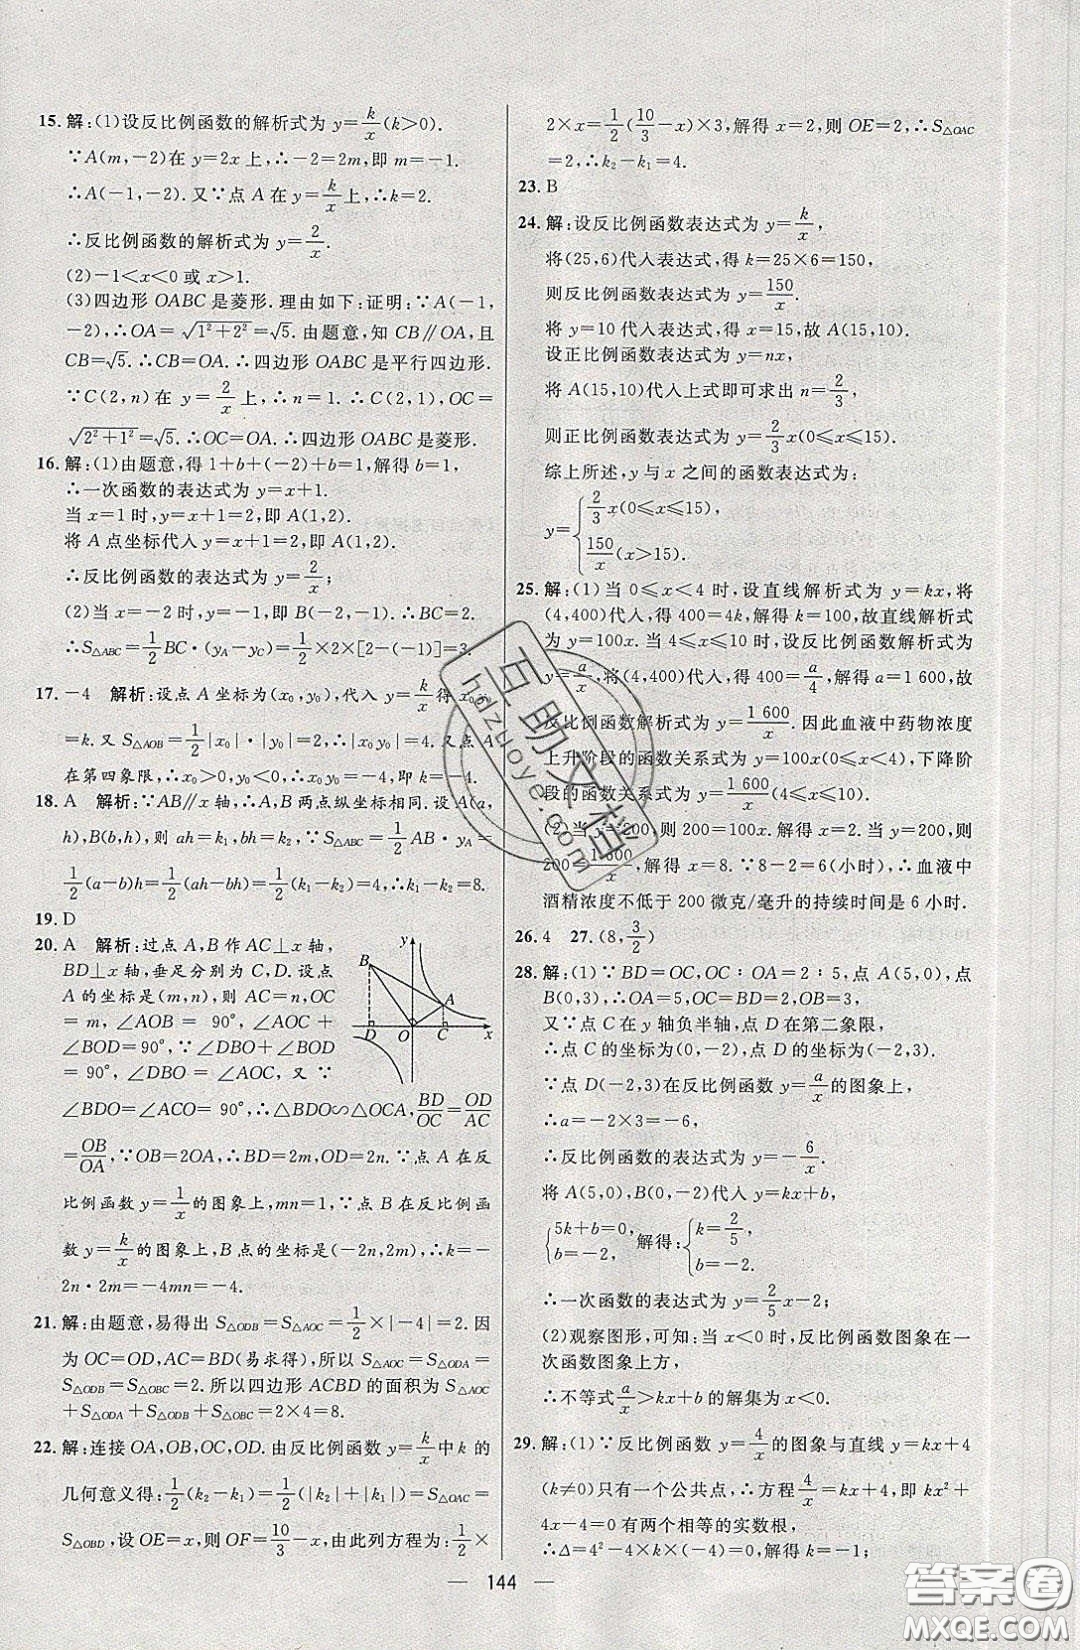 15. 解:(1)设反比例函数的解析式为 y=k/x(k>0).
∵A(m,-2)在 y=2x 上,∴-2=2m,即 m=-1.
∴A(-1,-2). 又∵点 A 在 y=k/x 上,∴k=2.
∴反比例函数的解析式为 y=2/x.
(2)-1<x<0 或 x>1.
(3)四边形 OABC 是菱形. 理由如下:证明:∵A(-1,
-2),∴OA=√(1²+2²)=√5. 由题意,知 CB∥OA,且
CB=√5. ∴CB=OA. ∴四边形 OABC 是平行四边形.
∵C(2,n)在 y=2/x 上,∴n=1. ∴C(2,1),OC=
√(2²+1²)=√5. ∴OC=OA. ∴四边形 OABC 是菱形.
16. 解:(1)由题意,得 1+b+(-2)+b=1,解得 b=1,
∴一次函数的表达式为 y=x+1.
当 x=1时,y=x+1=2,即 A(1,2).
将 A 点坐标代入,得 y=x+1=2,即 A(1,2).
∴反比例函数的表达式为 y=2/x;
(2)当 x=-2时,y=-1,即 B(-2,-1). ∴BC=2.
∴S△ABC=1/2 BC·(yA-yC)=1/2×2×[2-(-1)]=3.
17. -4 解析:设点 A 坐标为(x₀,y₀),代入 y=k/x得 x₀
=k. 又∵S△AOB=1/2|x₀|·|y₀|=2,∴|x₀y₀|=4. 又点 A
在第四象限,∴x₀>0,y₀<0,∴x₀y₀=-4,∴k=-4.
18. A 解析:∵AB∥x 轴,∴A,B 两点纵坐标相同. 设A(a,
h),B(b,h),则 ah=k₁,bh=k₂,∵S△ABC=1/2 AB·yA=
1/2(a-b)h=1/2(ah-bh)=1/2(k₁-k₂)=4,∴k₁-k₂=8.
19. D
20. A 解析:过点 A,B 作 AC⊥x 轴,
BD⊥x 轴,垂足分别为 C,D. 设点
A 的坐标为(m,n),则 AC=n,OC
=m,∠AOB=90°,∴∠AOC+
∠BOD=90°,∵∠DBO+∠BOD
=90°,∴∠DBO=∠AOC,又∵
∠BDO=∠ACO=90°,∴△BDO∽△OCA,BD/OC=OD/AC
=OB/OA,∵OB=2OA,∴BD=2m,OD=2n. ∵点 A 在反
比例函数 y=1/x的图象上,mn=1,∵点 B 在反比例函
数 y=k/x的图象上,B 点的坐标是(-2n,2m),∴k=-
2n·2m=-4mn=-4.
y
B
A
D
O
C
x
21. 解:由题意,易得出 S△ODB=S△AOC=1/2×|-4|=2. 因
为 OC=OD,AC=BD(易求得),所以 S△AOC=S△ODA=
S△ODB=S△OBC=2. 所以四边形 ACBD 的面积为 S△AOC
+S△ODA+S△ODB+S△OBC=2×4=8.
22. 解:连接 OA,OB,OC,OD. 由反比例函数 y=k/x中 k 的
几何意义得:1/2(k₂-k₁)=1/2(|k₂|+|k₁|)=S△OAC=
S△OBD,设 OE=x,则 OF=10/3-x,由此列方程为:1/2×
2×x=1/2(10/3-x)×3,解得 x=2,则 OE=2,∴S△OAC
=2,∴k₂-k₁=4.
23. B
24. 解:设反比例函数表达式为 y=k/x,
将(25,6)代入表达式,得 k=25×6=150,
则反比例函数表达式为 y=150/x.
将 y=10代入表达式,得 x=15,故 A(15,10).
设正比例函数表达式为 y=nx,
将 A(15,10)代入上式即可求出 n=2/3,
则正比例函数表达式为 y=2/3x(0≤x≤15).
综上所述,y 与 x 之间的函数表达式为:
y={2/3x(0≤x≤15),
150/x(x>15).
25. 解:(1)当 0≤x<4时,设直线解析式为 y=kx,将
(4,400)代入,得 400=4k,解得 k=100,故直线解析式
为 y=100x. 当 4≤x≤10 时,设反比例函数解析式为
y=a/x,将(4,400)代入,得400=a/4,解得 a=1 600,故
反比例函数解析式为 y=1 600/x. 因此血液中药物浓度
上升阶段的函数关系式为 y=100x(0≤x<4),下降阶
段的函数关系式为 y=1 600/x(4≤x≤10).
(2)当 y=200,则 200=100x. 解得 x=2. 当 y=200,则
200=1 600/x,解得 x=8. ∵8-2=6(小时),∴血液中
酒精浓度不低于 200 微克/毫升的持续时间是 6 小时.
26. 4 27. (8,3/2)
28. 解:(1)∵BD=OC,OC∶OA=2∶5,点 A(5,0),点
B(0,3),∴OA=5,OC=BD=2,OB=3,
又∵点 C 在 y 轴负半轴,点 D 在第二象限,
∴点 C 的坐标为(0,-2),点 D 的坐标为(-2,3).
∵点 D(-2,3)在反比例函数 y=a/x的图象上,
∴a=-2×3=-6,
∴反比例函数的表达式为 y=-6/x.
将 A(5,0),B(0,-2)代入 y=kx+b,
{5k+b=0, b=-2, 解得:{k=2/5, b=-2.
∴一次函数的表达式为 y=2/5x-2;
(2)观察图形,可知:当 x<0时,反比例函数图象在一
次函数图象上方,
∴不等式a/x>kx+b 的解集为 x<0.
29. 解:(1)∵反比例函数 y=4/x的图象与直线 y=kx+4
(k≠0)只有一个公共点,∴方程4/x=kx+4,即 kx²+
4x-4=0有两个相等的实数根,
∴Δ=4²-4×k×(-4)=0,解得 k=-1;
— 144 —
互助文档
hdzuoye.com
答案圈
MXQE.COM